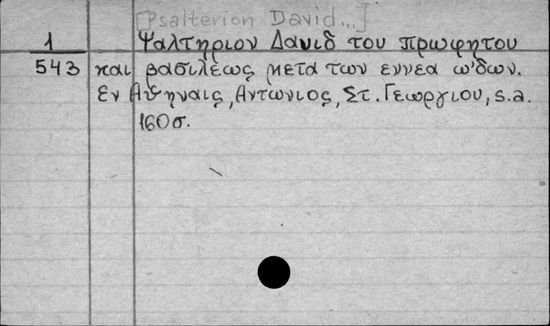 [Psalterion David...]
1 Ψαλτηριον Δαυιδ του πρωφητου
543 και βασιλέως μετα των εννεα ω'δων.
Εν Αθηναις, Αντωνιος, Στ. Γεωργιου, s.a.
160σ.